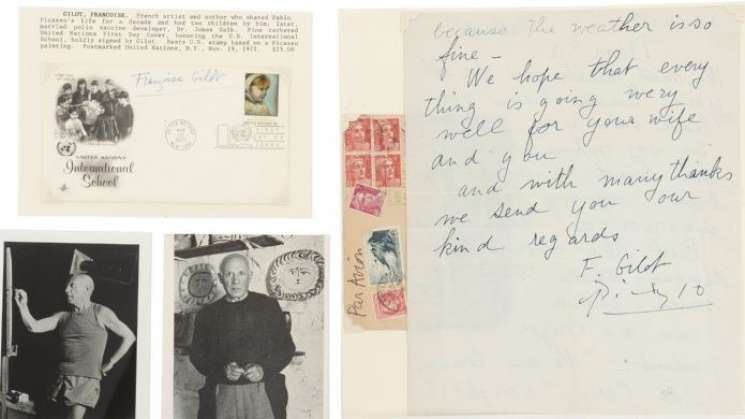 GILOT, FRANCOISE. French artist and author who shared Pablo
Picasso's life for a decade and had two children by him; later,
married polio vaccine developer, Dr. Jonas Salk. Fine cacheted
United Nations First Day Cover, honoring the U.N. International
School, boldly signed by Gilot. Bears U.N. stamp based on a Picasso
painting. Postmarked United Nations, N.Y., Nov. 19, 1971. $25.00
Françoise Gilot
UNITED NATIONS
International
School
Par Avion
because the weather is so
fine —
We hope that every
thing is going very
well for your wife
and you
and with many thanks
we send you our
kind regards
F. Gilot